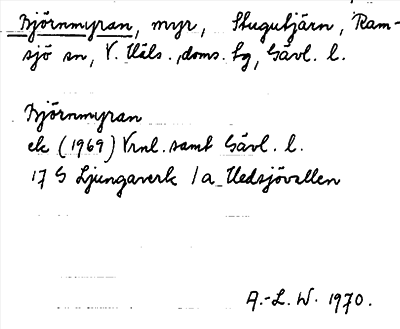 Björnmyran, myr, Stugutjärn, Ram-
sjö sn, V. Häls., doms. sg, Gävl. l.
Björnmyran
ek (1969) Vrnl. samt Gävl. l.
17 G Ljungaverk 1 a Hedsjövallen
A.-L. W. 1970.